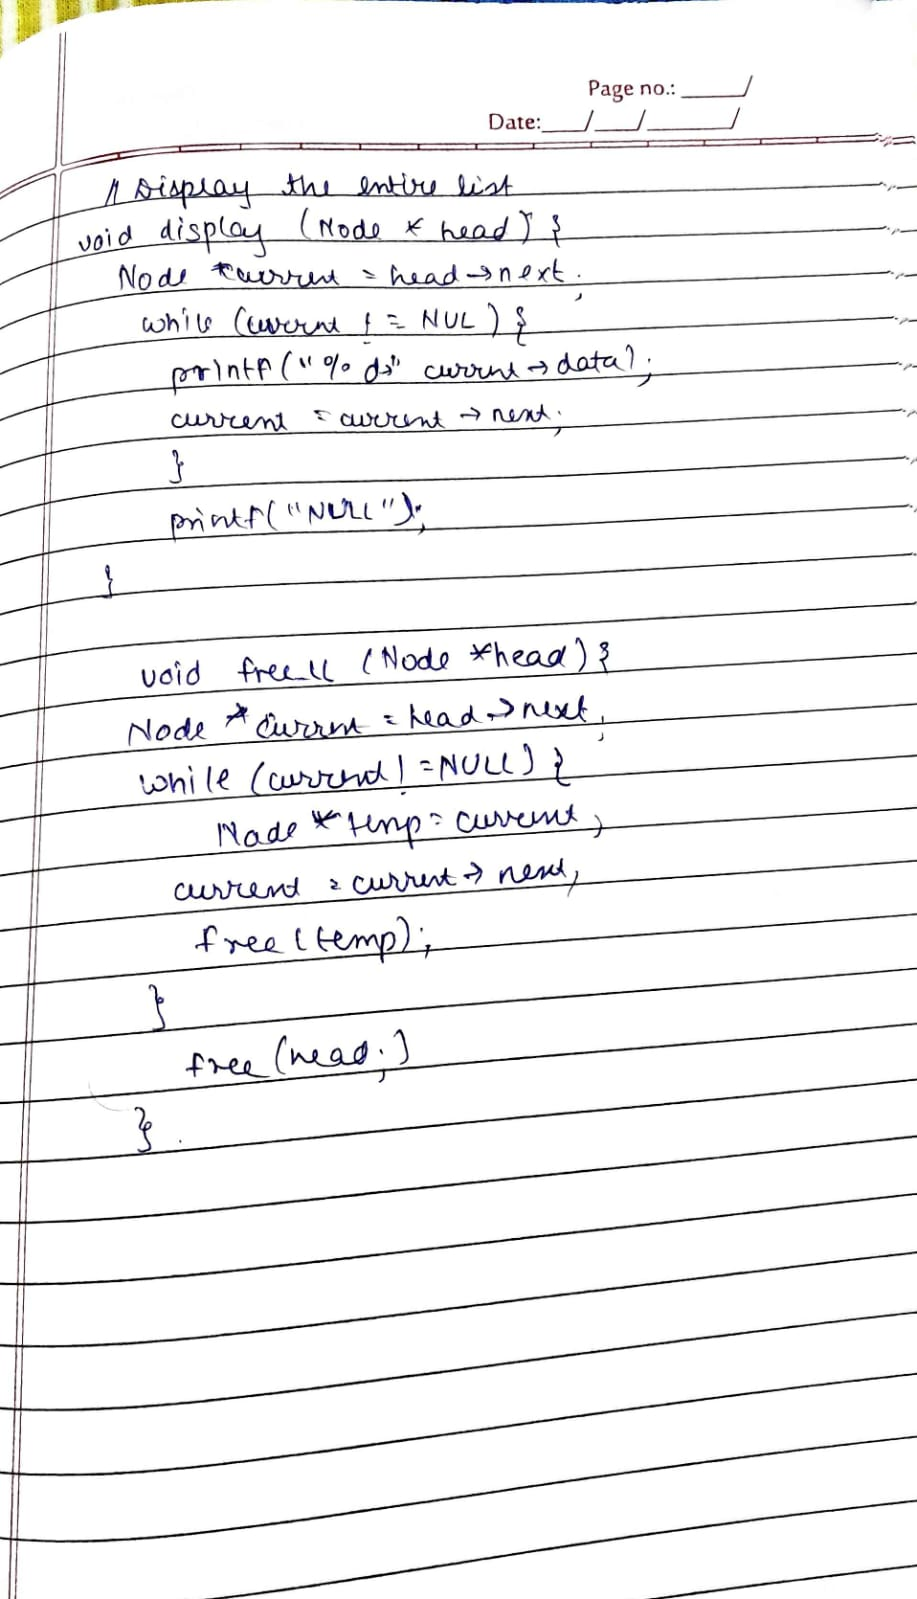 Page no.:
Date:
// Display the entire list
void display (Node * head) {
Node *current = head→next;
while (current != NUL) {
printf ("%d→" current→data);
current = current → next;
}
printf("NULL");
}
void freell (Node *head) {
Node * current = head→next;
while (current != NULL) {
Node * temp = current;
current = current → next;
free (temp);
}
free (head;)
}.